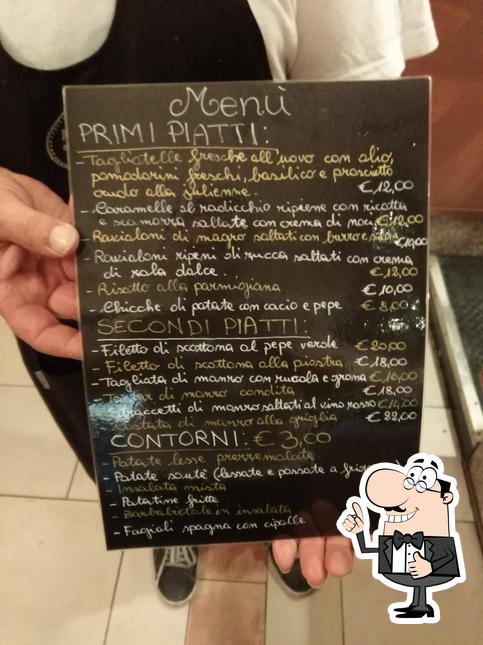 Menù
PRIMI PIATTI:
- Tagliatelle fresche all'uovo con olio,
pomodorini freschi, basilico e prosciutto
crudo alla julienne. € 12,00
- Caramelle al radicchio ripiene con ricotta
e scamorza saltate con crema di noci € 12,00
- Ravioloni di magro saltati con burro e salvia € 10,00
- Ravioloni ripieni di rucca saltati con crema
di zola dolce.. € 12,00
- Risotto alla parmigiana € 10,00
- Chicche di patate con cacio e pepe € 8,00
SECONDI PIATTI:
- Filetto di scottona al pepe verde € 20,00
- Filetto di scottona alla piastra € 18,00
- Tagliata di manzo con rucola e grana € 16,00
- Tartar di manzo condita € 18,00
- Straccetti di manzo saltati al vino rosso € 14,00
- Costata di manzo alla griglia € 22,00
CONTORNI: € 3,00
- Patate lesse prezzemolate
- Patate sauté (lessate e passate a
- Insalata mista
- Patatine fritte
- Barbabietole in insalata
- Fagioli spagna con cipolle